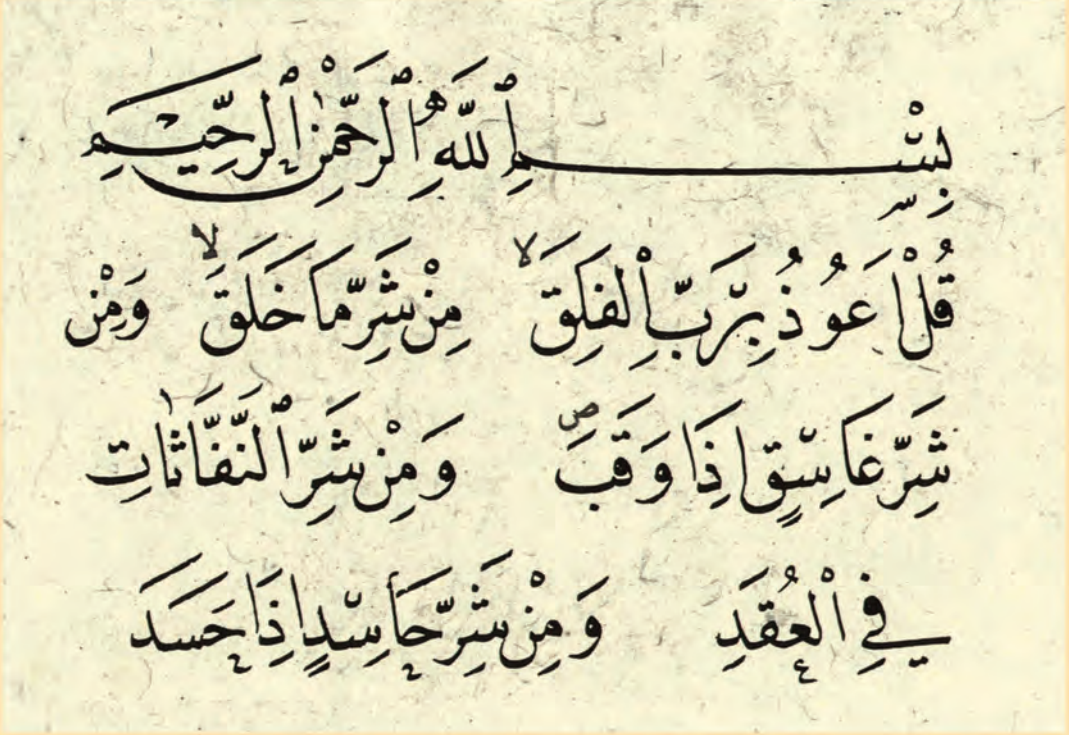 بِسْمِ ٱللَّهِ ٱلرَّحْمٰنِ ٱلرَّحِيمِ
قُلْ اَعُوذُ بِرَبِّ الْفَلَقِۙ مِنْ شَرِّ مَا خَلَقَۙ وَمِنْ
شَرِّ غَاسِقٍ اِذَا وَقَبَۖ وَمِنْ شَرِّ ٱلنَّفَّاثَاتِ
فِي الْعُقَدِ وَمِنْ شَرِّ حَاسِدٍ اِذَا حَسَدَ